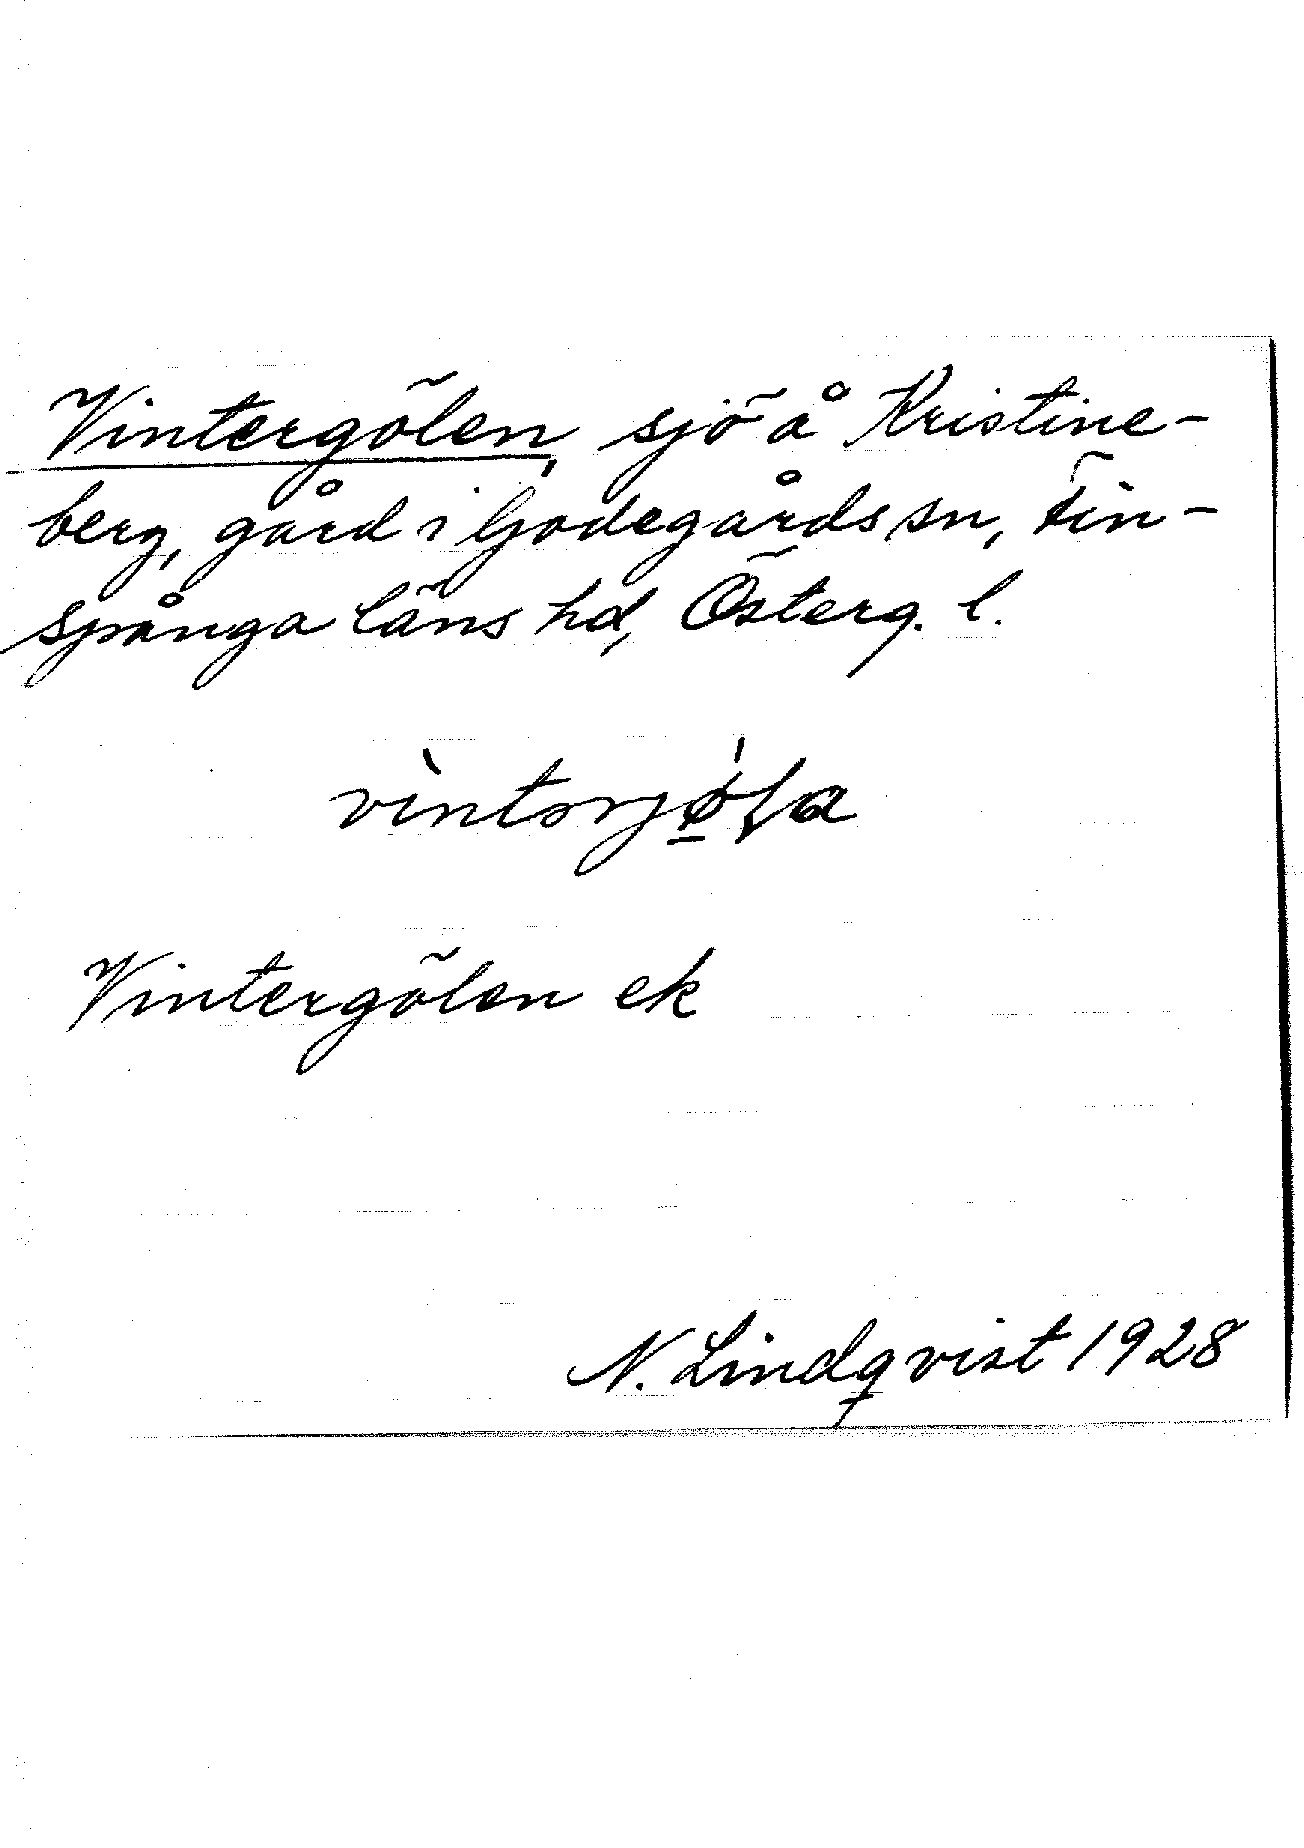 Vintergölen, sjö å Kristine-
berg, gård i Godegårds sn, Fin-
spånga läns hd, Österg. l.
Vintergölen ek
N. Lindqvist 1928